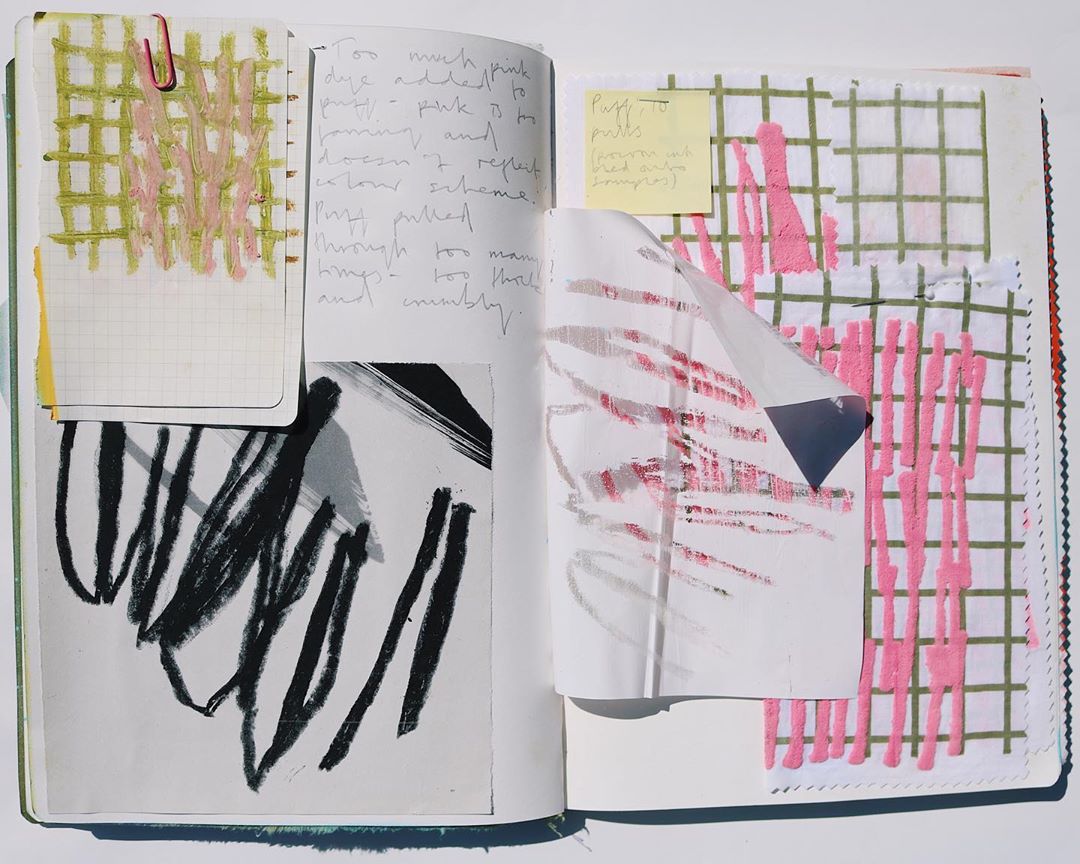 Too much pink
dye added to
puff - pink is too
and
doesn't reflect
colour scheme.
Puff pulled
through too many
times - too thick
and crumbly.
Puff, 10
pulls
(procion ink
bled onto
samples)